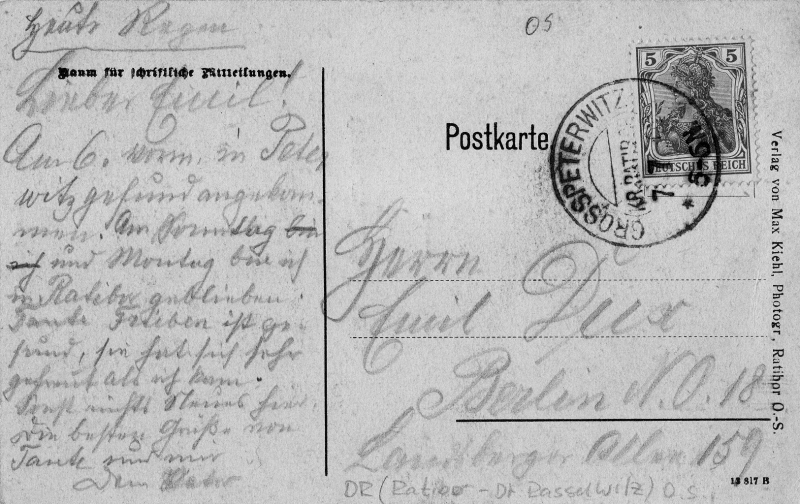 Heute Regen
OS
Raum für schriftliche Mitteilungen.
Lieber Emil!
Am 6. vorm. in Peter
witz gesund angekom
men. Am Sonntag bin
ich und Montag bin ich
in Ratibor geblieben.
Tante Frieben ist ge-
sund, sie hat sich sehr
gefreut als ich kam.
Sonst nichts Neues hier.
Die besten Grüße von
Tante und mir
Dein Vater
Postkarte
5 5
DEUTSCHES REICH
GROSSPETERWITZ
KR. RATIBOR
7
5-6N
*
Herrn
Emil
Berlin N.O. 18
Landsberger Allee 159
Verlag von Max Kiehl, Photogr., Ratibor O.-S.
13 817 B
DR (Ratibor - Dt Rasselwitz) O.S.